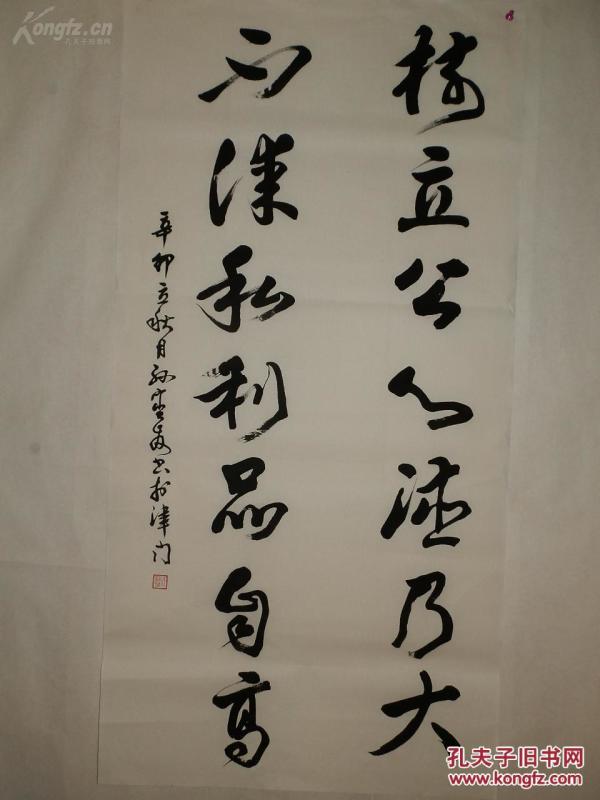 Kongfz.cn
孔夫子旧书网
树立公心德乃大
不谋私利品自高
辛卯立秋月孙书於津门
孔夫子旧书网
www.kongfz.com